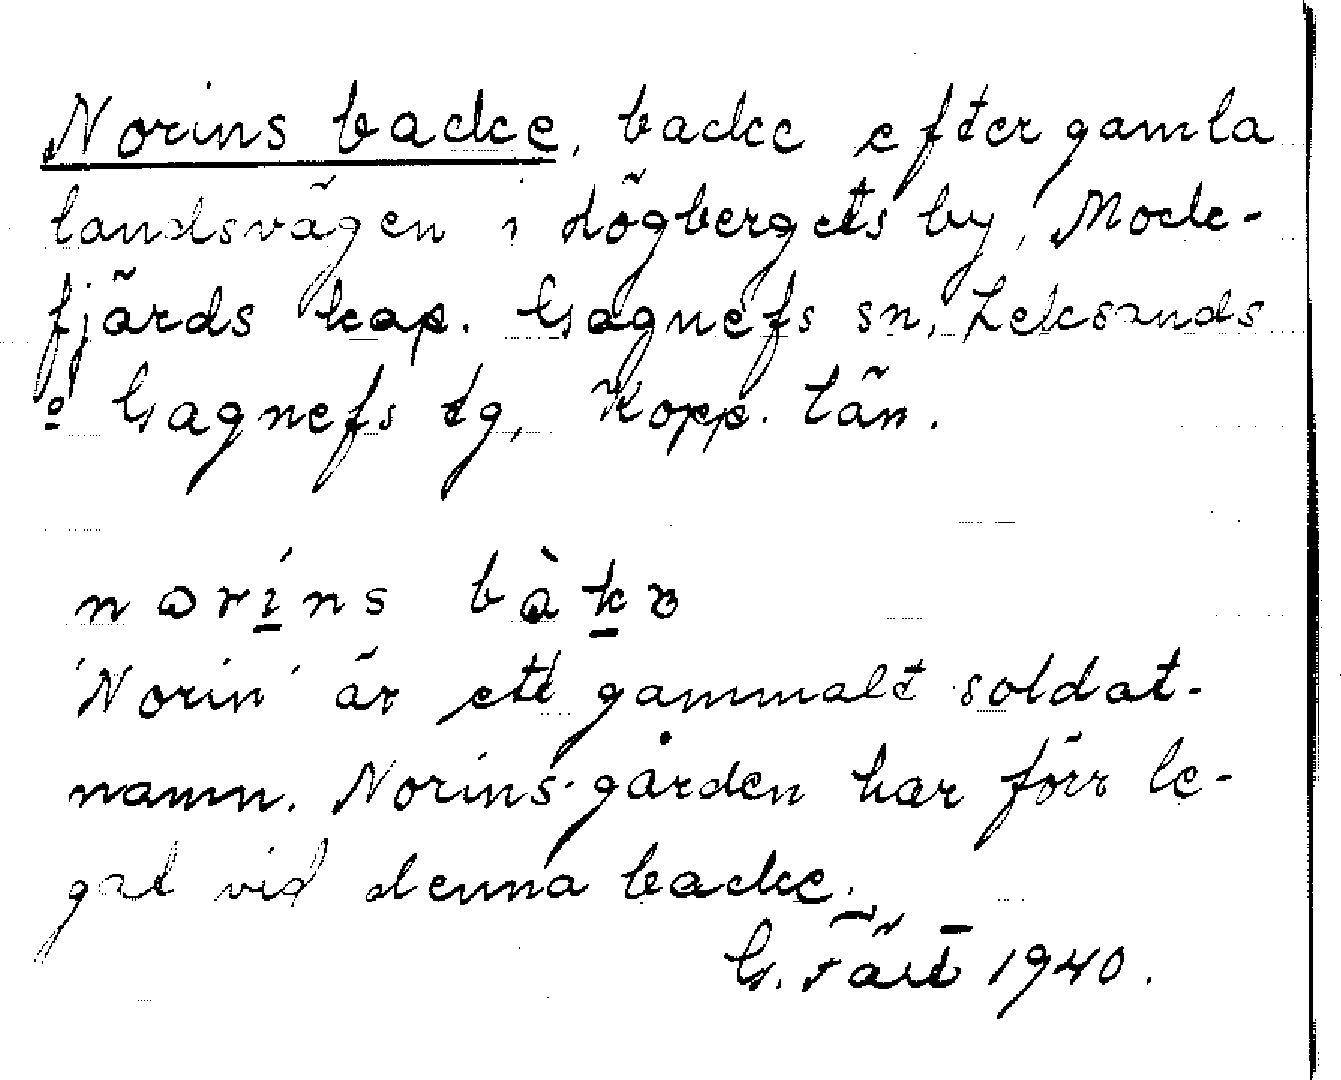 Norins backe, backe efter gamla
landsvägen i Högbergets by, Mock-
fjärds kap. Gagnefs sn, Leksands
o Gagnefs tg, Kopp. län.
norins bàkɷ
'Norin' är ett gammalt soldat-
namn. Norins-gården har förr le-
gat vid denna backe.
G. Täpt 1940.